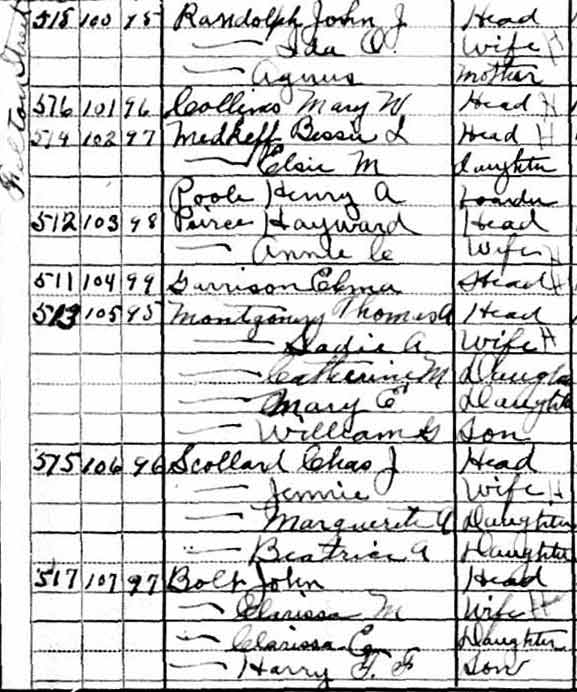 518 100 95 Randolph John J Head
— Ida O. Wife H
— Agnus Mother
576 101 96 Collins Mary W Head H
574 102 97 Medkeff Bessie L Head H
— Elsie M daughter
Poole Henry A
512 103 98 Peirce Hayward Head
— Annie C Wife H
511 104 99 Garrison Head H
513 105 95 Montgomery Thomas A Head
— Sadie A Wife H
— Catherine M Daughter
— Mary E Daughter
— William G Son
515 106 96 Scollard Chas J Head
— Jennie Wife H
— Marguerite A Daughter
— Beatrice A Daughter
517 107 97 Bolt John Head
— Clarissa M Wife H
— Clarissa Daughter
— Harry F. F Son
Street